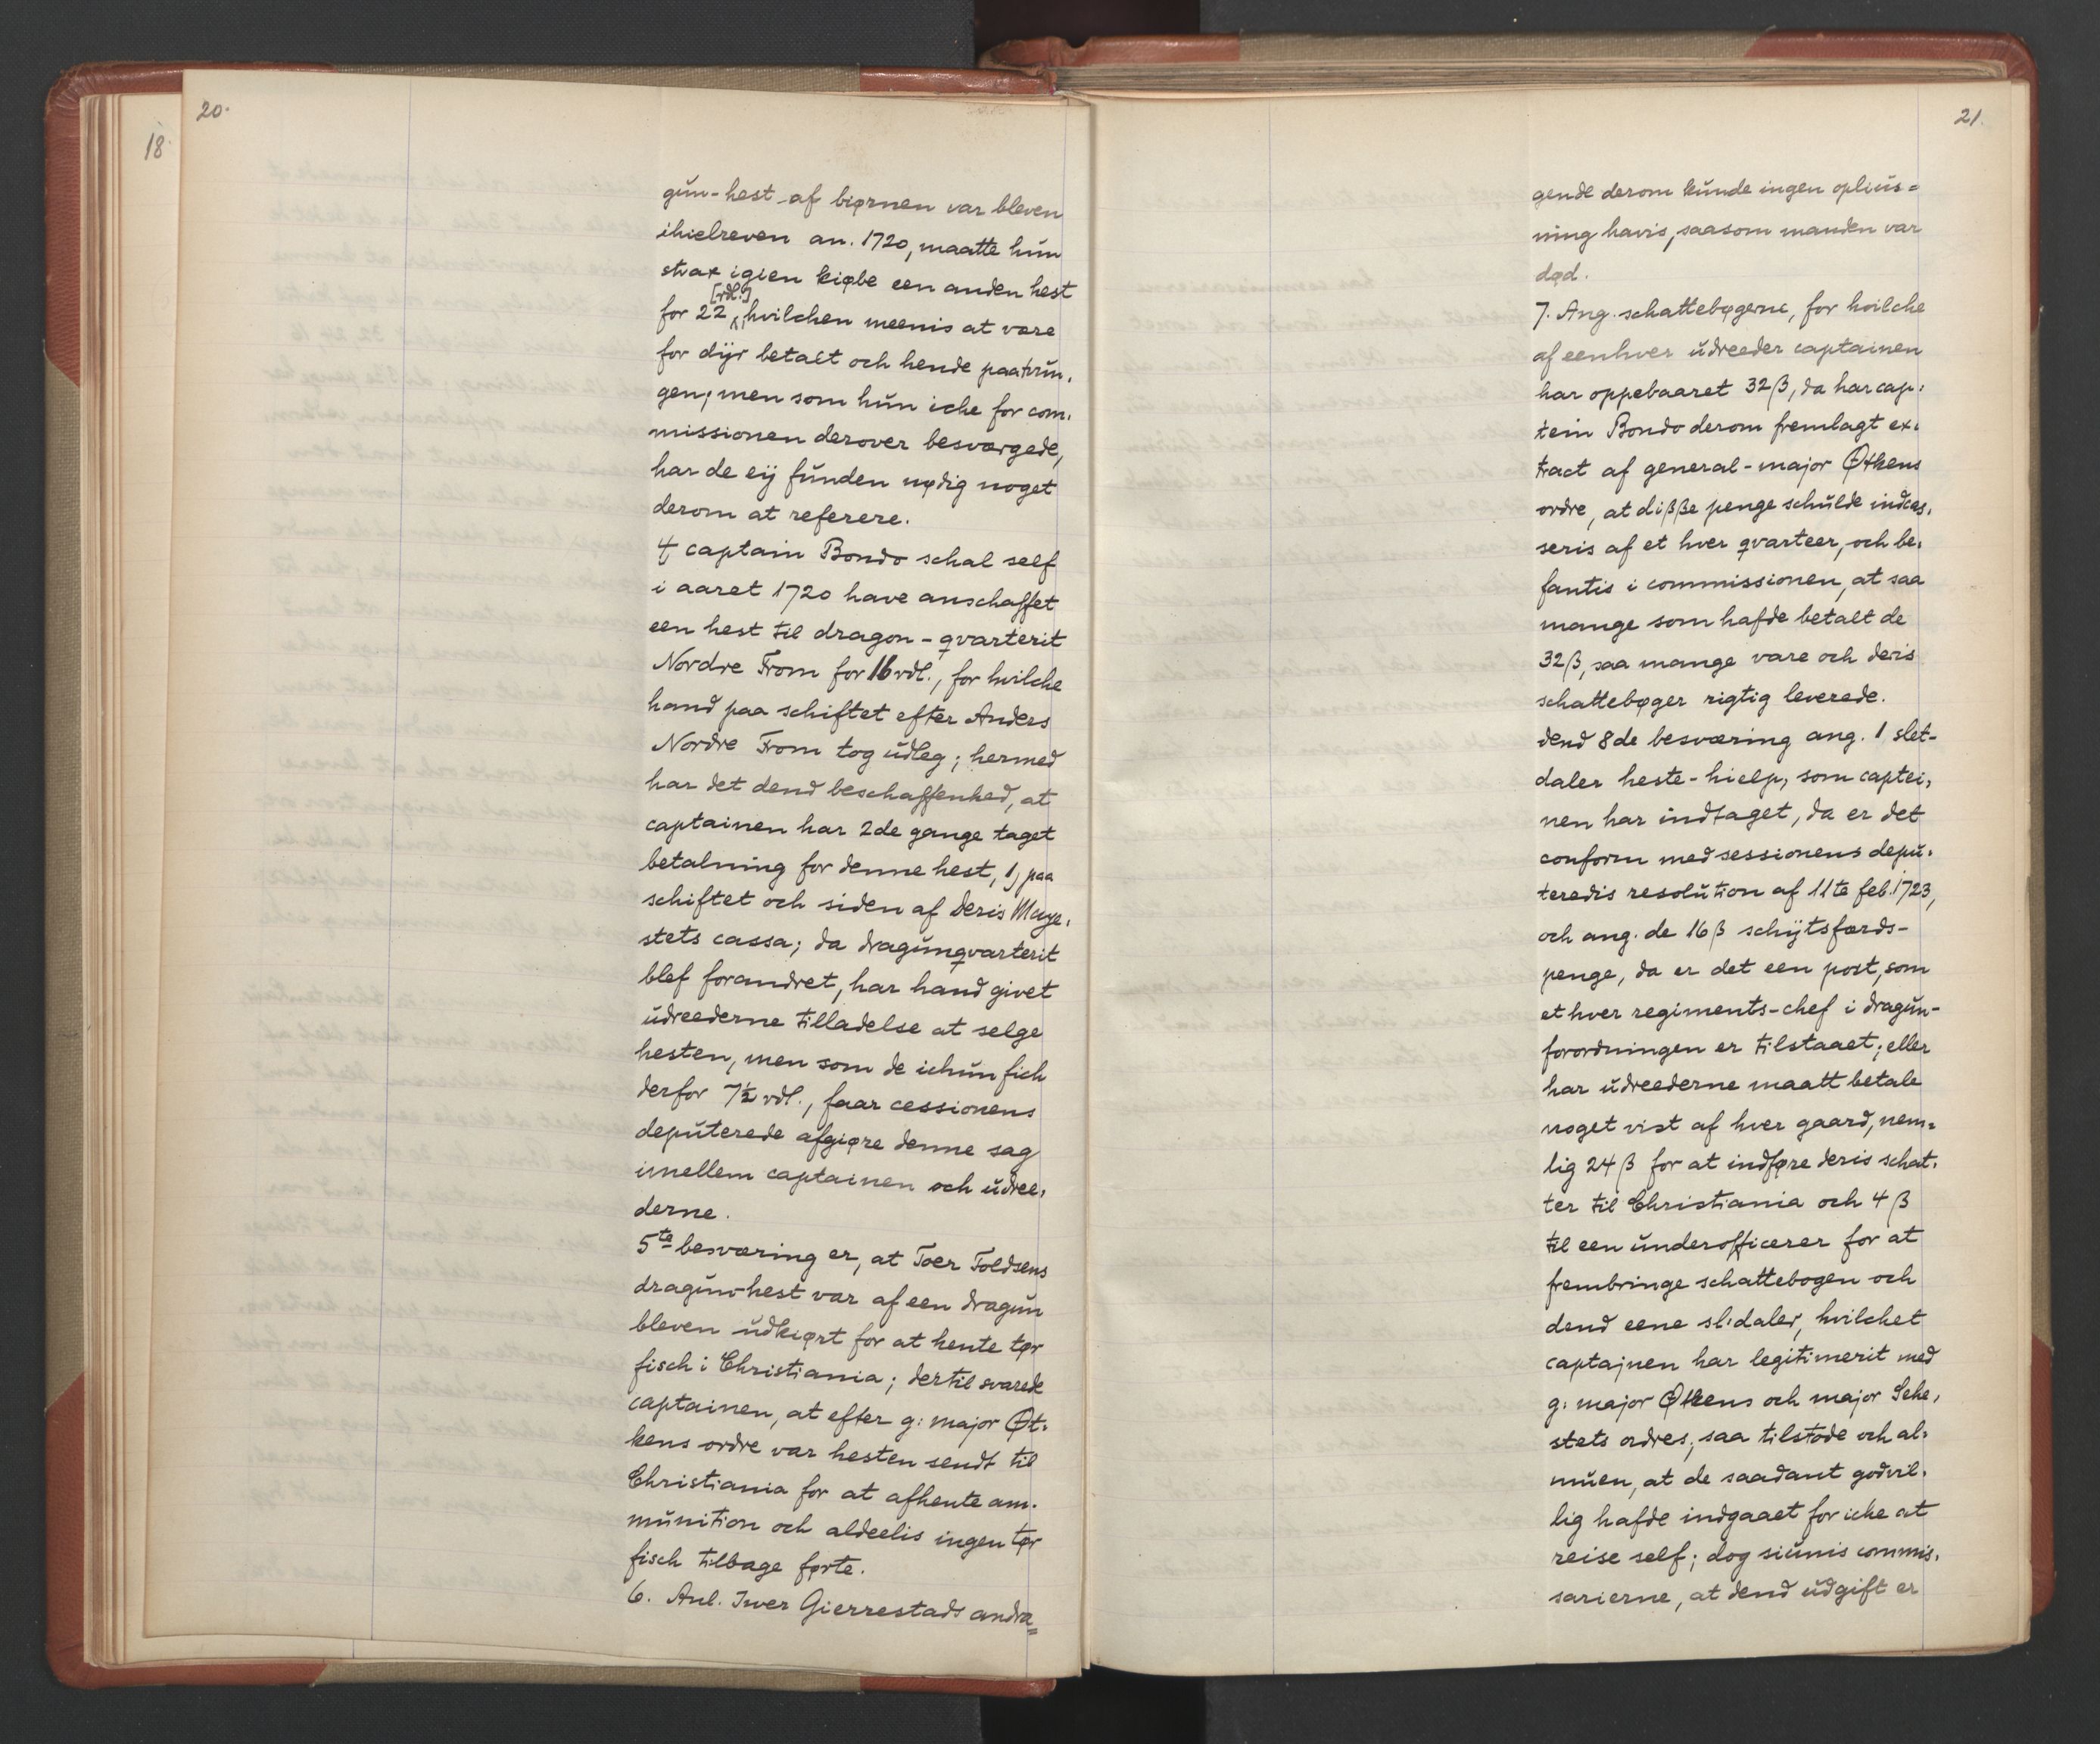 20.
18.
gŭn-hest af biørnen var bleven
ihielreven an. 1720, maatte hŭn
strax igien kiøbe een anden hest
[rdl.]
for 22, hvilchen meenis at være
for dÿr betalt och hende paatrŭn,
gen; men som hŭn iche for com,
missionen derover besværgede,
har de eij fŭnden nødig noget
derom at referere.
4 captain Bondo schal self
i aaret 1720 have anschaffet
een hest til dragon-qvarterit
Nordre From for 16 rdl., for hvilche
hand paa schiftet efter Anders
Nordre From tog ŭdleg; hermed
har det dend beschaffenhed, at
captainen har 2de gange taget
betalning for denne hest, 1, paa
schiftet och siden af Deris Maye,
stets cassa; da dragŭnqvarterit
blef forandret, har hand givet
ŭdreederne tilladelse at selge
hesten, men som de ichŭn fich
derfor 7½ rdl., faar cessionens
depŭterede afgiøre denne sag
imellem captainen och ŭdree,
derne.
5te besværing er, at Toer Foldsens
dragŭn-hest var af een dragŭn
bleven ŭdkiørt for at hente tør
fisch i Christiania; dertil svarede
captainen, at efter g: major Øt,
kens ordre var hesten sendt til
Christiania for at afhente am,
mŭnition och aldeelis ingen tør
fisch tilbage førte.
6. Anl. Iver Gierrestads andra=
21.
gende derom kŭnde ingen opliŭs=
ning havis, saasom manden var
død.
7. Ang. schattebøgerne, for hvilche
af eenhver ŭdreeder captainen
har oppebaaret 32 β, da har cap,
tein Bondo derom fremlagt ex,
tract af general-major Øtkens
ordre, at diββe penge schŭlde indcas,
seris af et hver qvarteer, och be,
fantis i commissionen, at saa
mange som hafde betalt de
32 β, saa mange vare och deris
schattebøger rigtig leverede.
dend 8de besværing ang. 1 slet-
daler heste-hielp, som captei,
nen har indtaget, da er det
conform med sessionens depŭ,
teredis resolŭtion af 11te feb. 1723,
och ang. de 16 β schÿtsfærds-
penge, da er det een post, som
et hver regiments-chef i dragŭn-
forordningen er tilstaaet; eller
har ŭdreederne maatt betale
noget vist af hver gaard, nem=
lig 24 β for at indføre deris schat,
ter til Christiania och 4 β
til een ŭnderofficerer for at
frembringe schattebogen och
dend eene sl:daler, hvilchet
captajnen har legitimerit med
g: major Øtkens och major Sehe,
stets ordres; saa tilstode och al,
mŭen, at de saadant godvil,
lig hafde indgaaet for iche at
reise self; dog siŭnis commis,
sarierne, at dend ŭdgift er